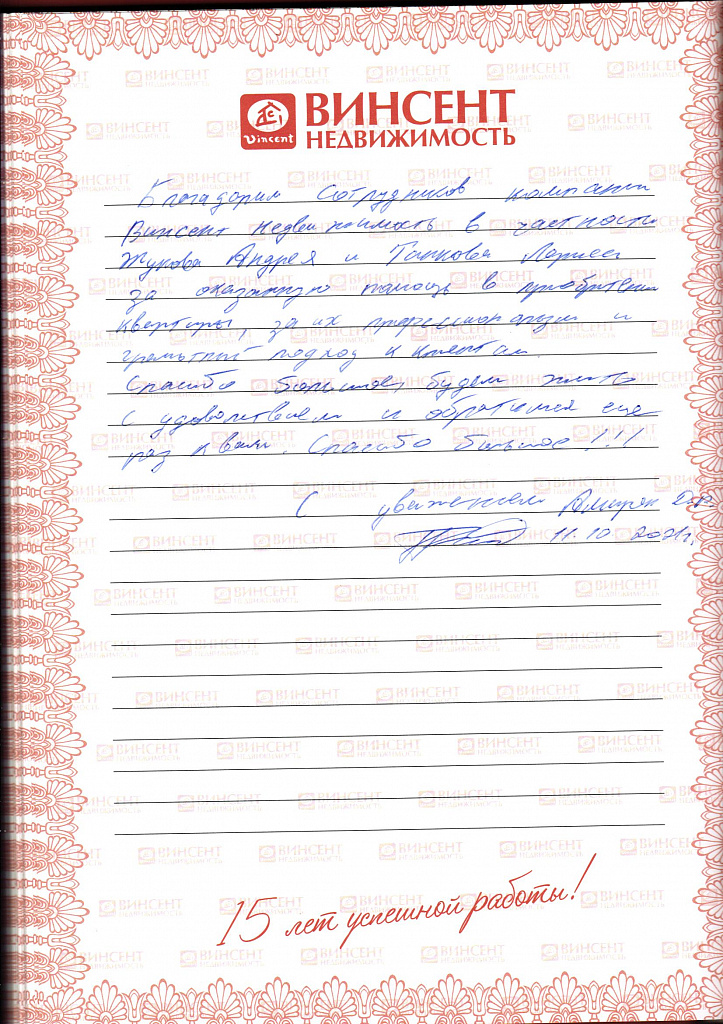 ВИНСЕНТ
НЕДВИЖИМОСТЬ
Vincent
Благодарим сотрудников компании
Винсент Недвижимость в частности
Жукова Андрея и
за оказанную помощь в приобретении
квартиры, за их профессионализм и
грамотный подход к клиентам.
Спасибо большое, будем жить
с удовольствием и обратимся еще
раз к вам. Спасибо большое!!!
С уважением
11.10.2021г.
15 лет успешной работы!